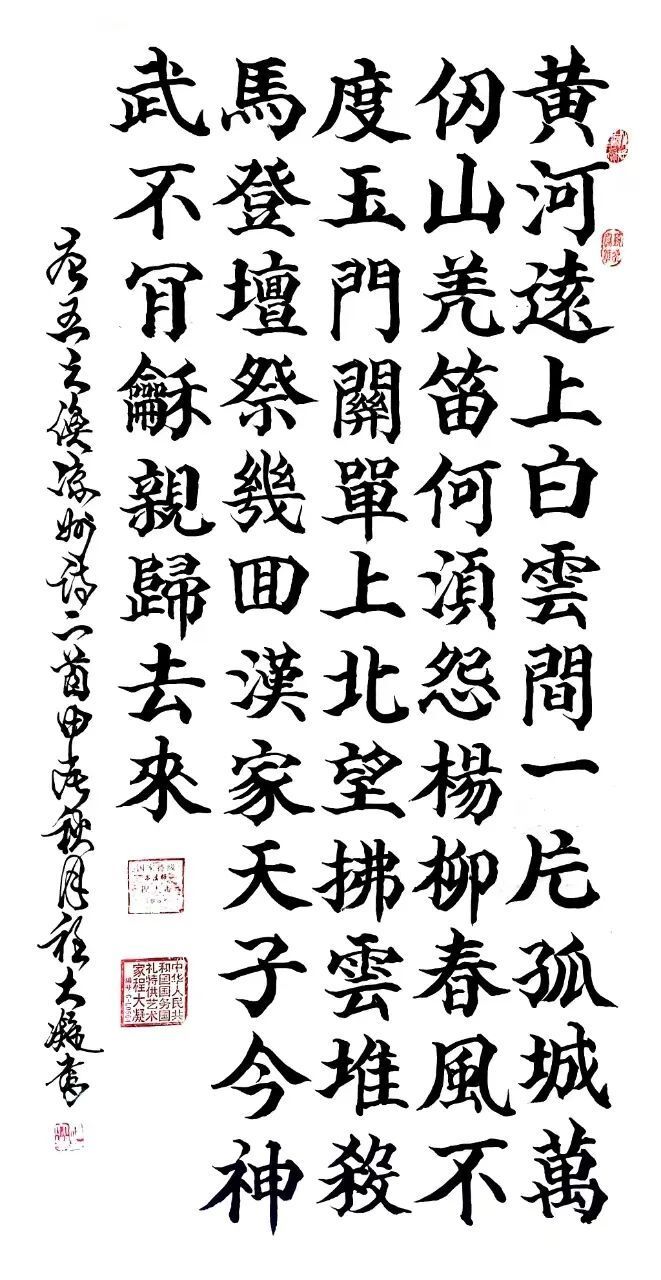 黄河遠上白雲間一片孤城萬
仞山羌笛何須怨楊柳春風不
度玉門關單上北望拂雲堆殺
馬登壇祭幾囬漢家天子今神
武不肯龢親歸去來
唐王之渙涼州詩二首甲辰秋月程大凝書
中华人民共
和国国务国
礼特供艺术
家程大凝